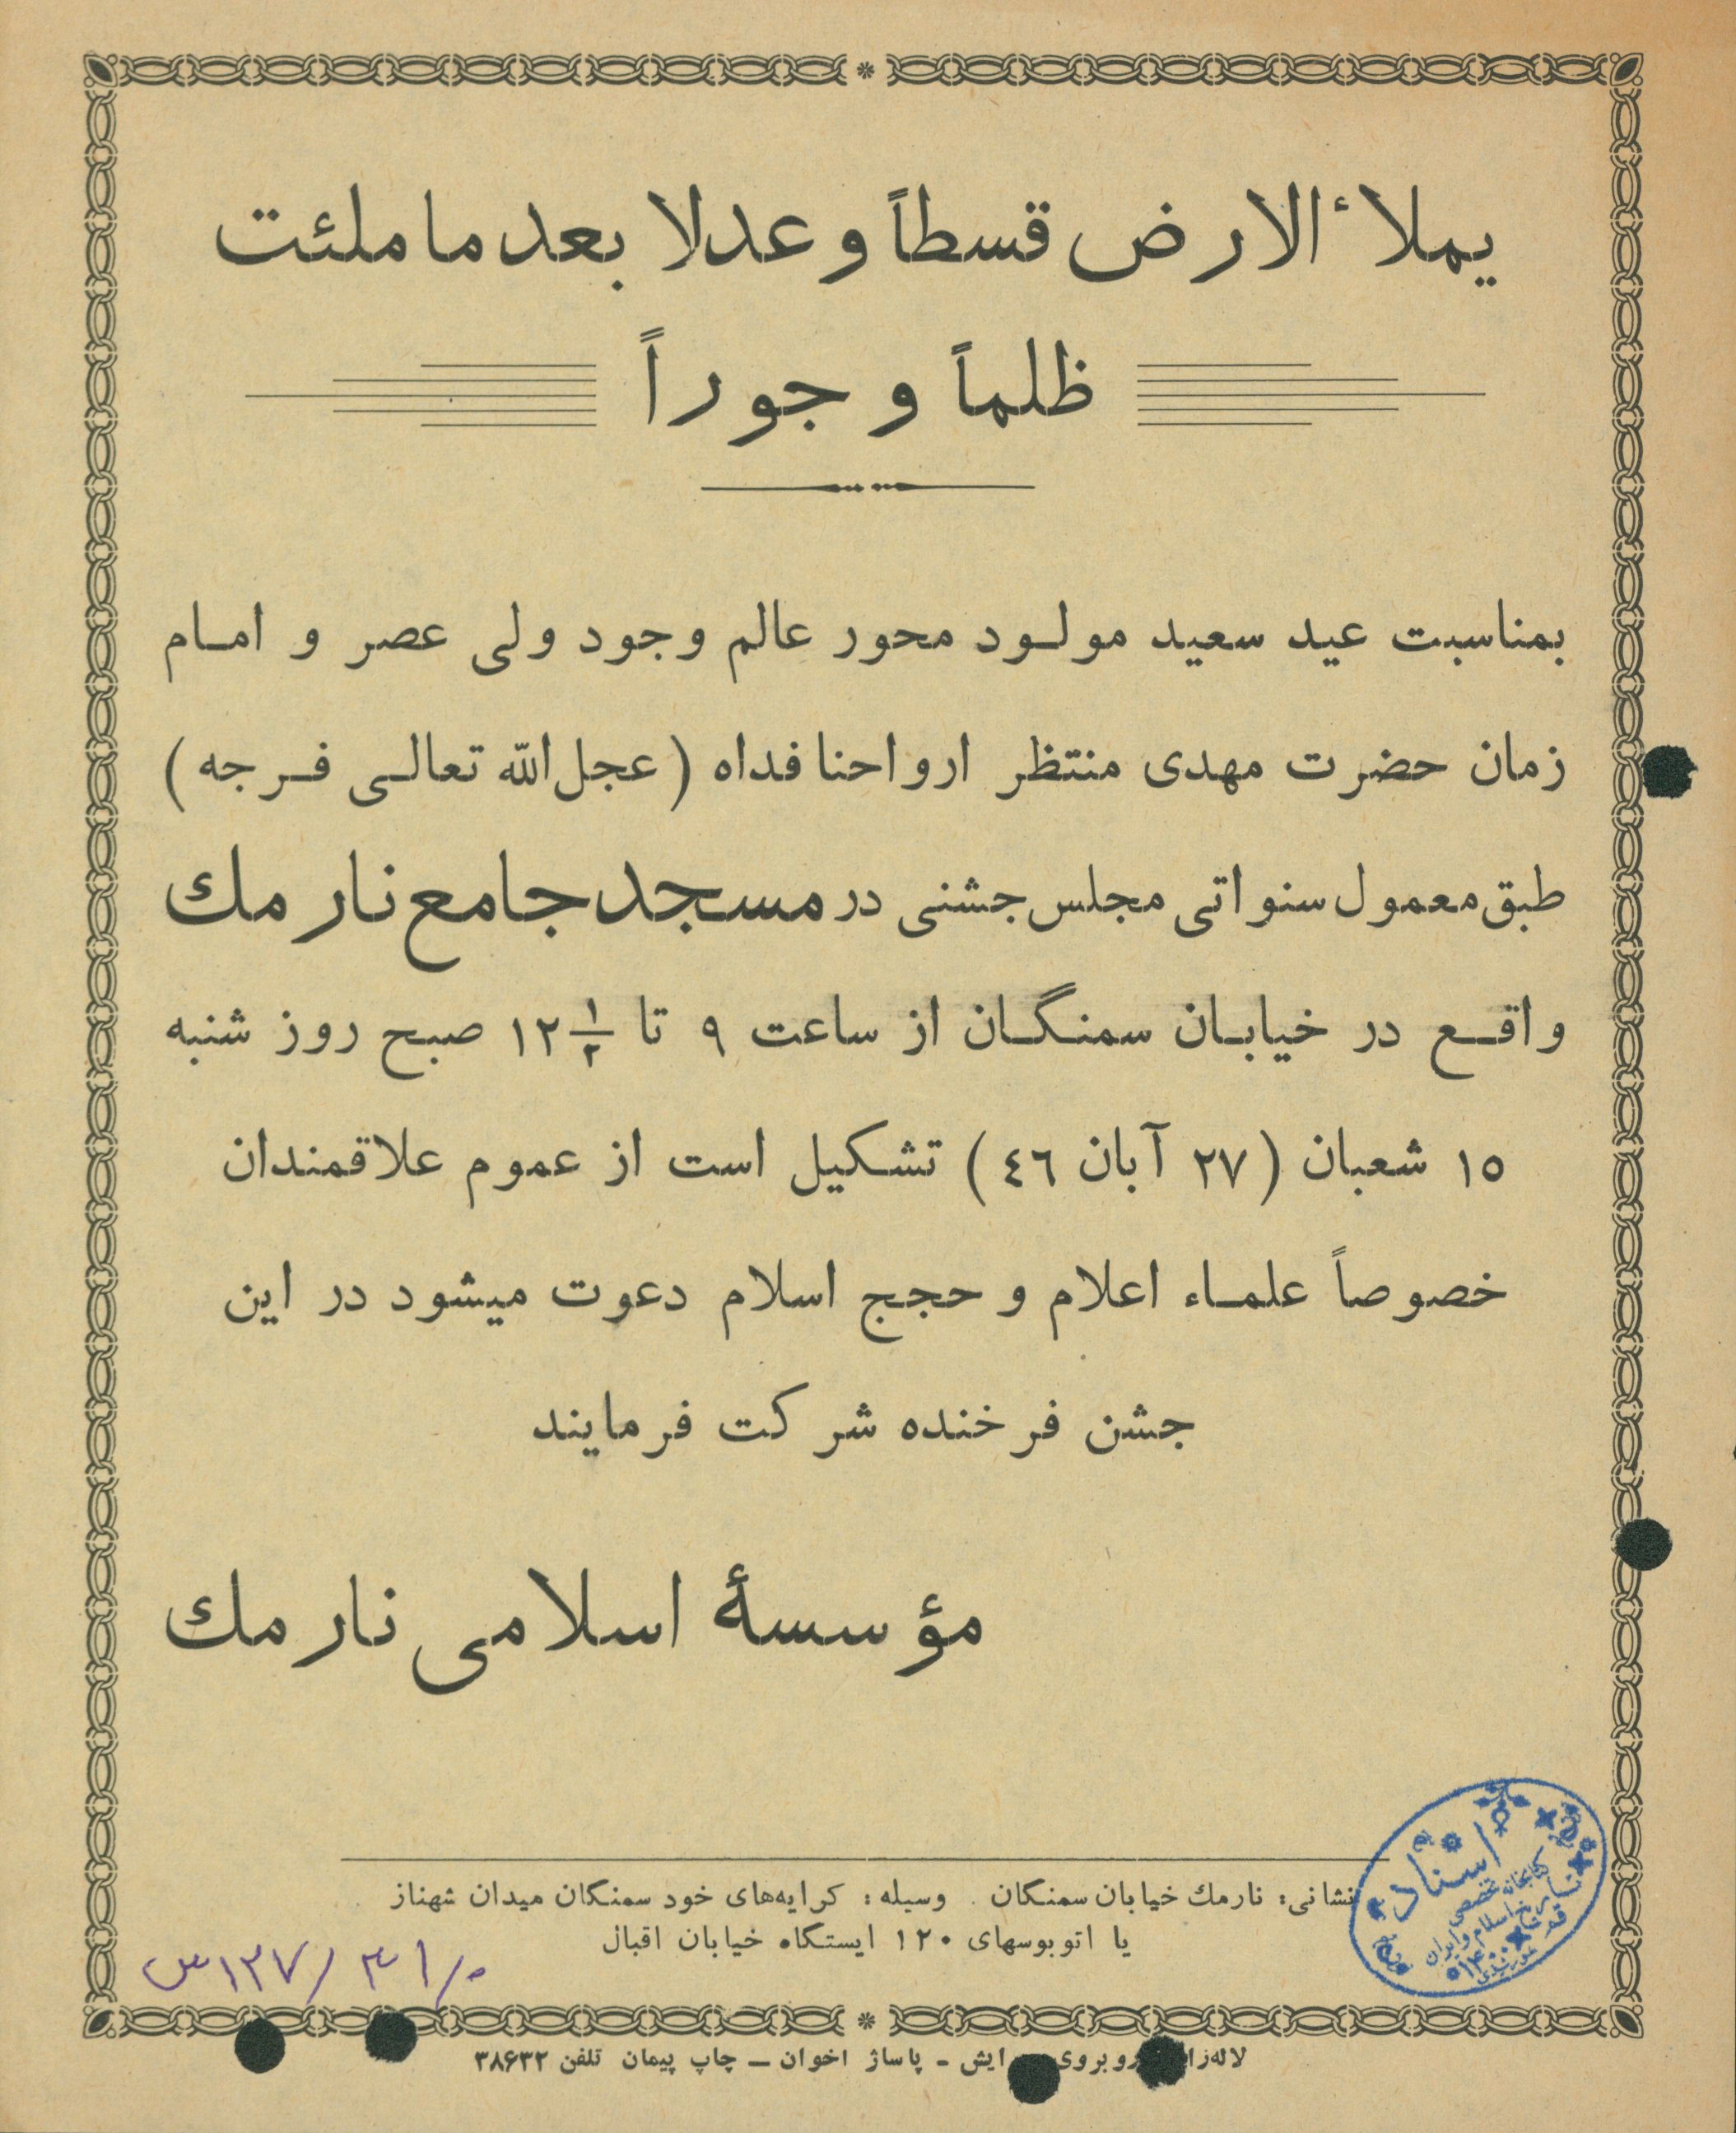 یملأ الارض قسطاً و عدلا بعد ما ملئت
ظلماً و جوراً
بمناسبت عید سعید مولود محور عالم وجود ولی عصر و امام
زمان حضرت مهدی منتظر ارواحنا فداه (عجل الله تعالی فرجه)
طبق معمول سنواتی مجلس جشنی در مسجد جامع نارمك
واقع در خیابان سمنگان از ساعت ۹ تا ۱۲ ۱/۲ صبح روز شنبه
۱۵ شعبان (۲۷ آبان ٤٦) تشکیل است از عموم علاقمندان
خصوصاً علماء اعلام و حجج اسلام دعوت میشود در این
جشن فرخنده شرکت فرمایند
مؤسسهٔ اسلامی نارمك
نشانی: نارمك خیابان سمنگان . وسیله: کرایه‌های خود سمنگان میدان شهناز
یا اتوبوسهای ۱۲۰ ایستگاه خیابان اقبال
اسناد
کتابخانه تخصصی
تاریخ اسلام و ایران
قم
۱۲۷/۳۱/۰س
روبروی - پاساژ اخوان ــ چاپ پیمان تلفن ۳۸۶۳۲